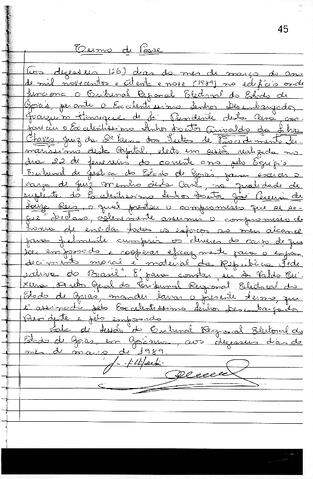 45
Termo de Posse
Aos dezesseis (16) dias do mes de março do ano
de mil novecentos e oitenta e nove (1989) no edifício onde
funciona o Tribunal Regional Eleitoral do Estado de
Goiás, perante o Excelentíssimo Senhor Desembargador
Joaquim Henrique de Sá, Presidente desta Casa, com-
pareceu o Excelentíssimo Senhor Doutor da Silva
Chaves, Juiz da 2ª Vara dos Feitos de
desta Capital, eleito em sessão realizada no
dia 22 de fevereiro do corrente ano pelo Egrégio
Tribunal de Justiça do Estado de Goiás para exercer o
cargo de Juiz Membro desta Casa, na qualidade de
suplente do Excelentíssimo Senhor Doutor José Pereira de
Souza Reis, o qual prestou o compromisso que se se-
gue: Declaro, solenemente assumo o compromisso de
honra de envidar todos os esforços ao meu alcance
para fielmente cumprir os deveres do cargo de que
sou empossado e cooperar eficazmente para o engran-
decimento moral e material da República Fede-
rativa do Brasil". E, para constar, eu
Diretor Geral do Tribunal Regional Eleitoral do
Estado de Goiás, mandei lavrar o presente termo, que
é assinado pelo Excelentíssimo Senhor Desembargador
Presidente e pelo empossado.
Sala de Sessões do Tribunal Regional Eleitoral do
Estado de Goiás, em Goiânia, aos dezesseis dias do
mes de março de 1989.